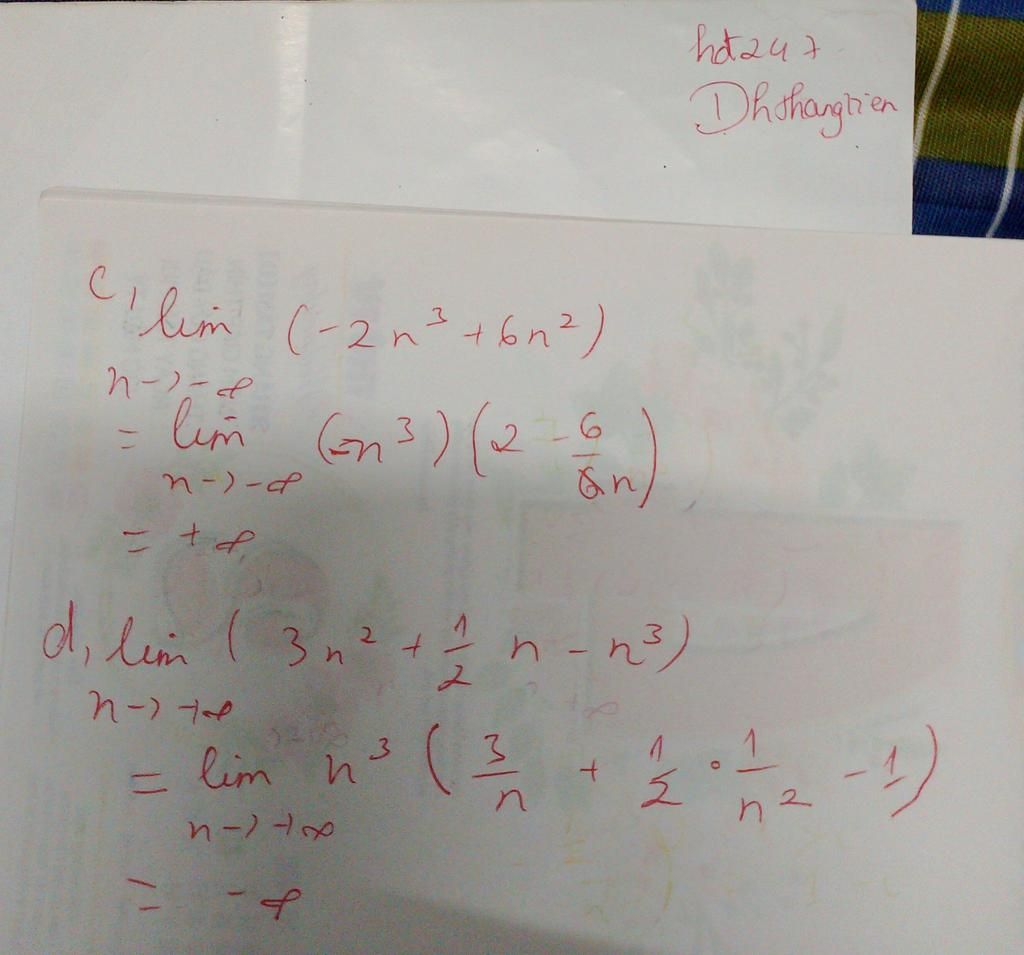 hdt247
Dhthangtien
c, lim (-2n³ + 6n²)
n->-∞
= lim (-n³) (2 - 6/n)
n->-∞
= +∞
d, lim ( 3n² + 1/2 n - n³)
n->+∞
= lim n³ ( 3/n + 1/2 . 1/n² - 1)
n->+∞
= -∞